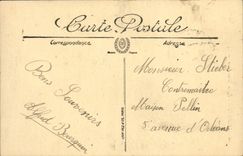 Carte Postale
Correspondance
Adresse
Bons Souvenirs
Alfred
Monsieur Stiéber
Contremaitre
Maison
5 avenue d'Orléans